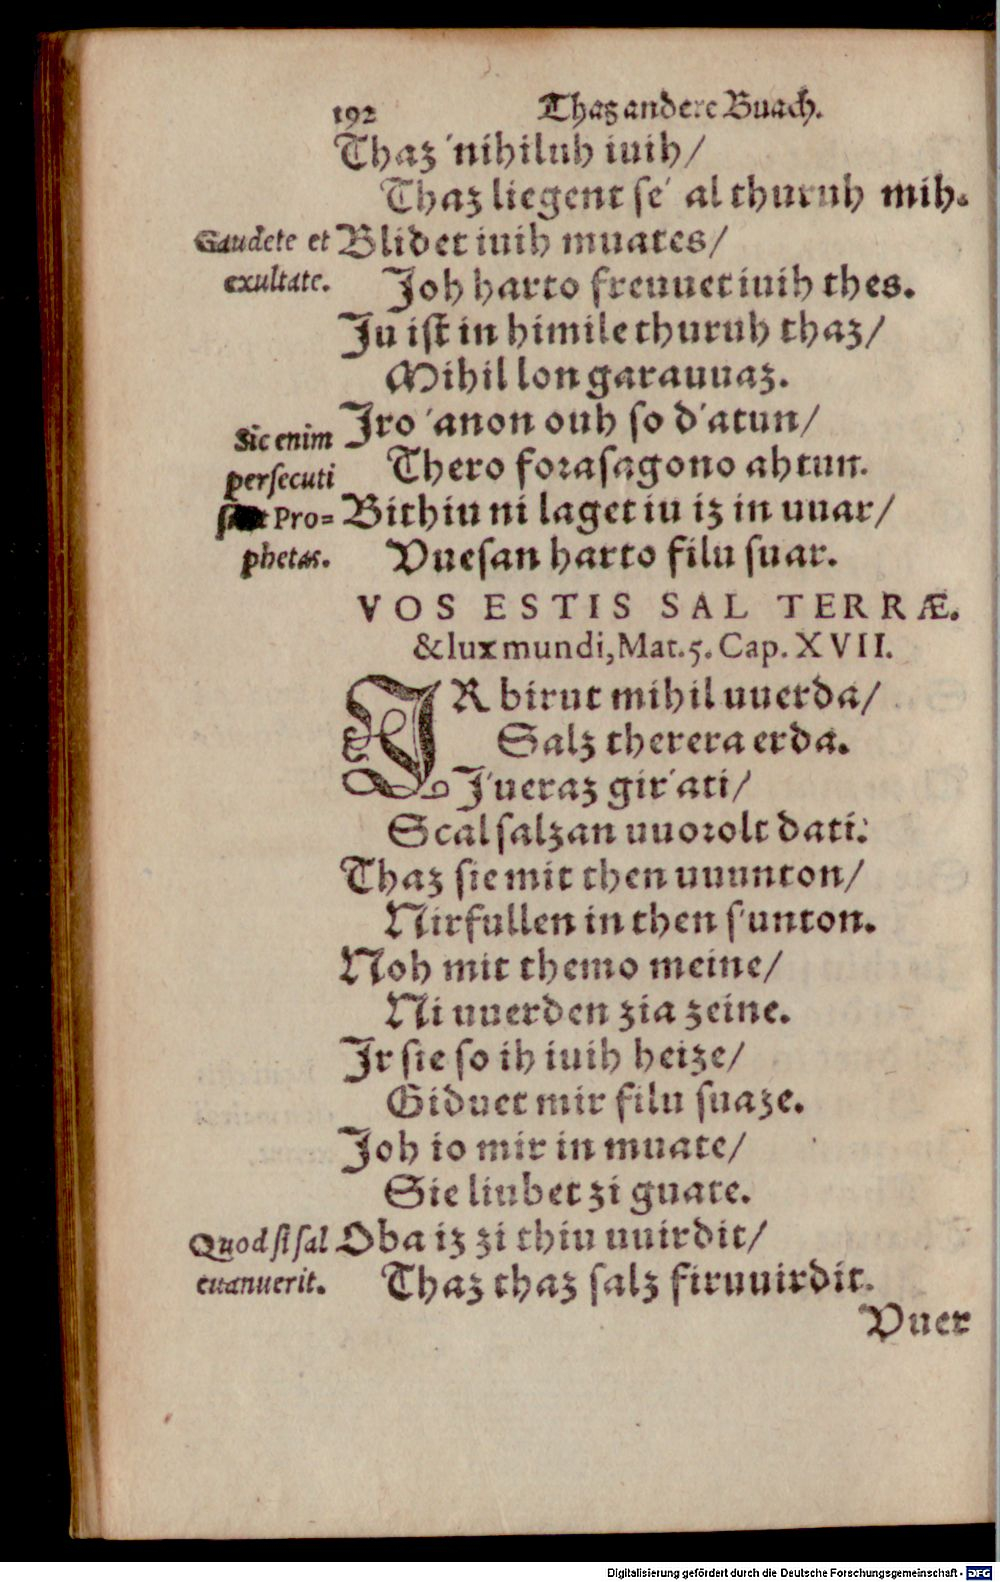 192 Thaz andere Buach.
Thaz 'nihiluh iuih/
Thaz liegent se' al thuruh mih.
Gaudete et
exultate.
Blidet iuih muates/
Joh harto freuuet iuih thes.
Ju ist in himile thuruh thaz/
Mihil lon garauuaz.
Sic enim
persecuti
Pro=
phetas.
Jro 'anon ouh so d'atun/
Thero forasagono ahtun.
Bithiu ni laget iu iz in uuar/
Vuesan harto filu suar.
VOS ESTIS SAL TERRÆ.
& lux mundi, Mat. 5. Cap. XVII.
JR birut mihil uuerda/
Salz therera erda.
J'ueraz gir'ati/
Scal salzan uuorolt dati.
Thaz sie mit then uuunton/
Nirfullen in then s'unton.
Noh mit themo meine/
Ni uuerden zia zeine.
Jr sie so ih iuih heize/
Giduet mir filu suaze.
Joh io mir in muate/
Sie liubet zi guate.
Quod si sal
euanuerit.
Oba iz zi thiu uuirdit/
Thaz thaz salz firuuirdit.
Vuer
Digitalisierung gefördert durch die Deutsche Forschungsgemeinschaft - DFG